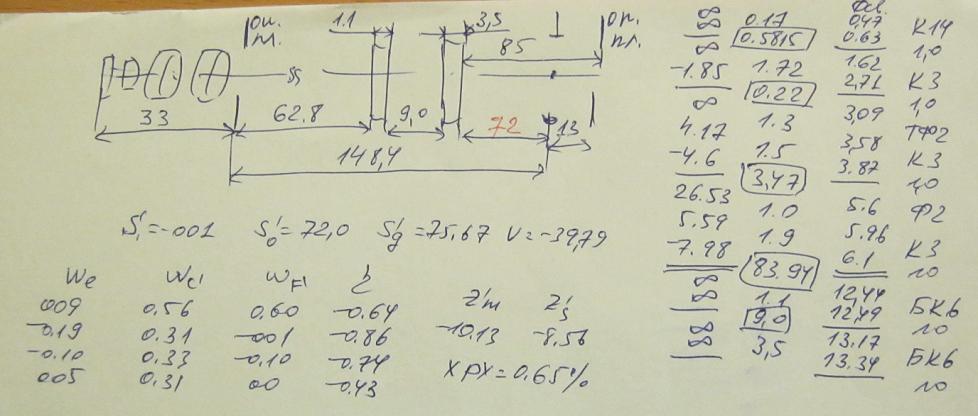 оп. пл.
1.1
3,5
оп. пл.
85
33
62.8
9,0
72
13
148,4
S'₁=-001 S'₀=72,0 S'g=75,67 V=-39,79
We Wc' WF'
009 0.56 0.60 -0.64
-0.19 0.31 -001 -0.86
-0.10 0.33 -0.10 -0.74
005 0.31 00 -0.43
Z'm Z's
-10.13 -8.56
ХРХ=0.65%
∞ 0.17 0,47 К14
∞ 0.5815 0.63 1,0
-1.85 1.72 1.62 К3
∞ 0.22 2,71 1,0
4.17 1.3 3,09 ТФ2
-4.6 1.5 3,58 К3
26.53 3,47 3.87 1,0
5.59 1.0 5.6 Ф2
-7.98 1.9 5.96 К3
∞ 83.94 6.1 1.0
∞ 1.1 12,44 БК6
∞ 9,0 12,49 1.0
∞ 3,5 13.17 БК6
13.34 1.0